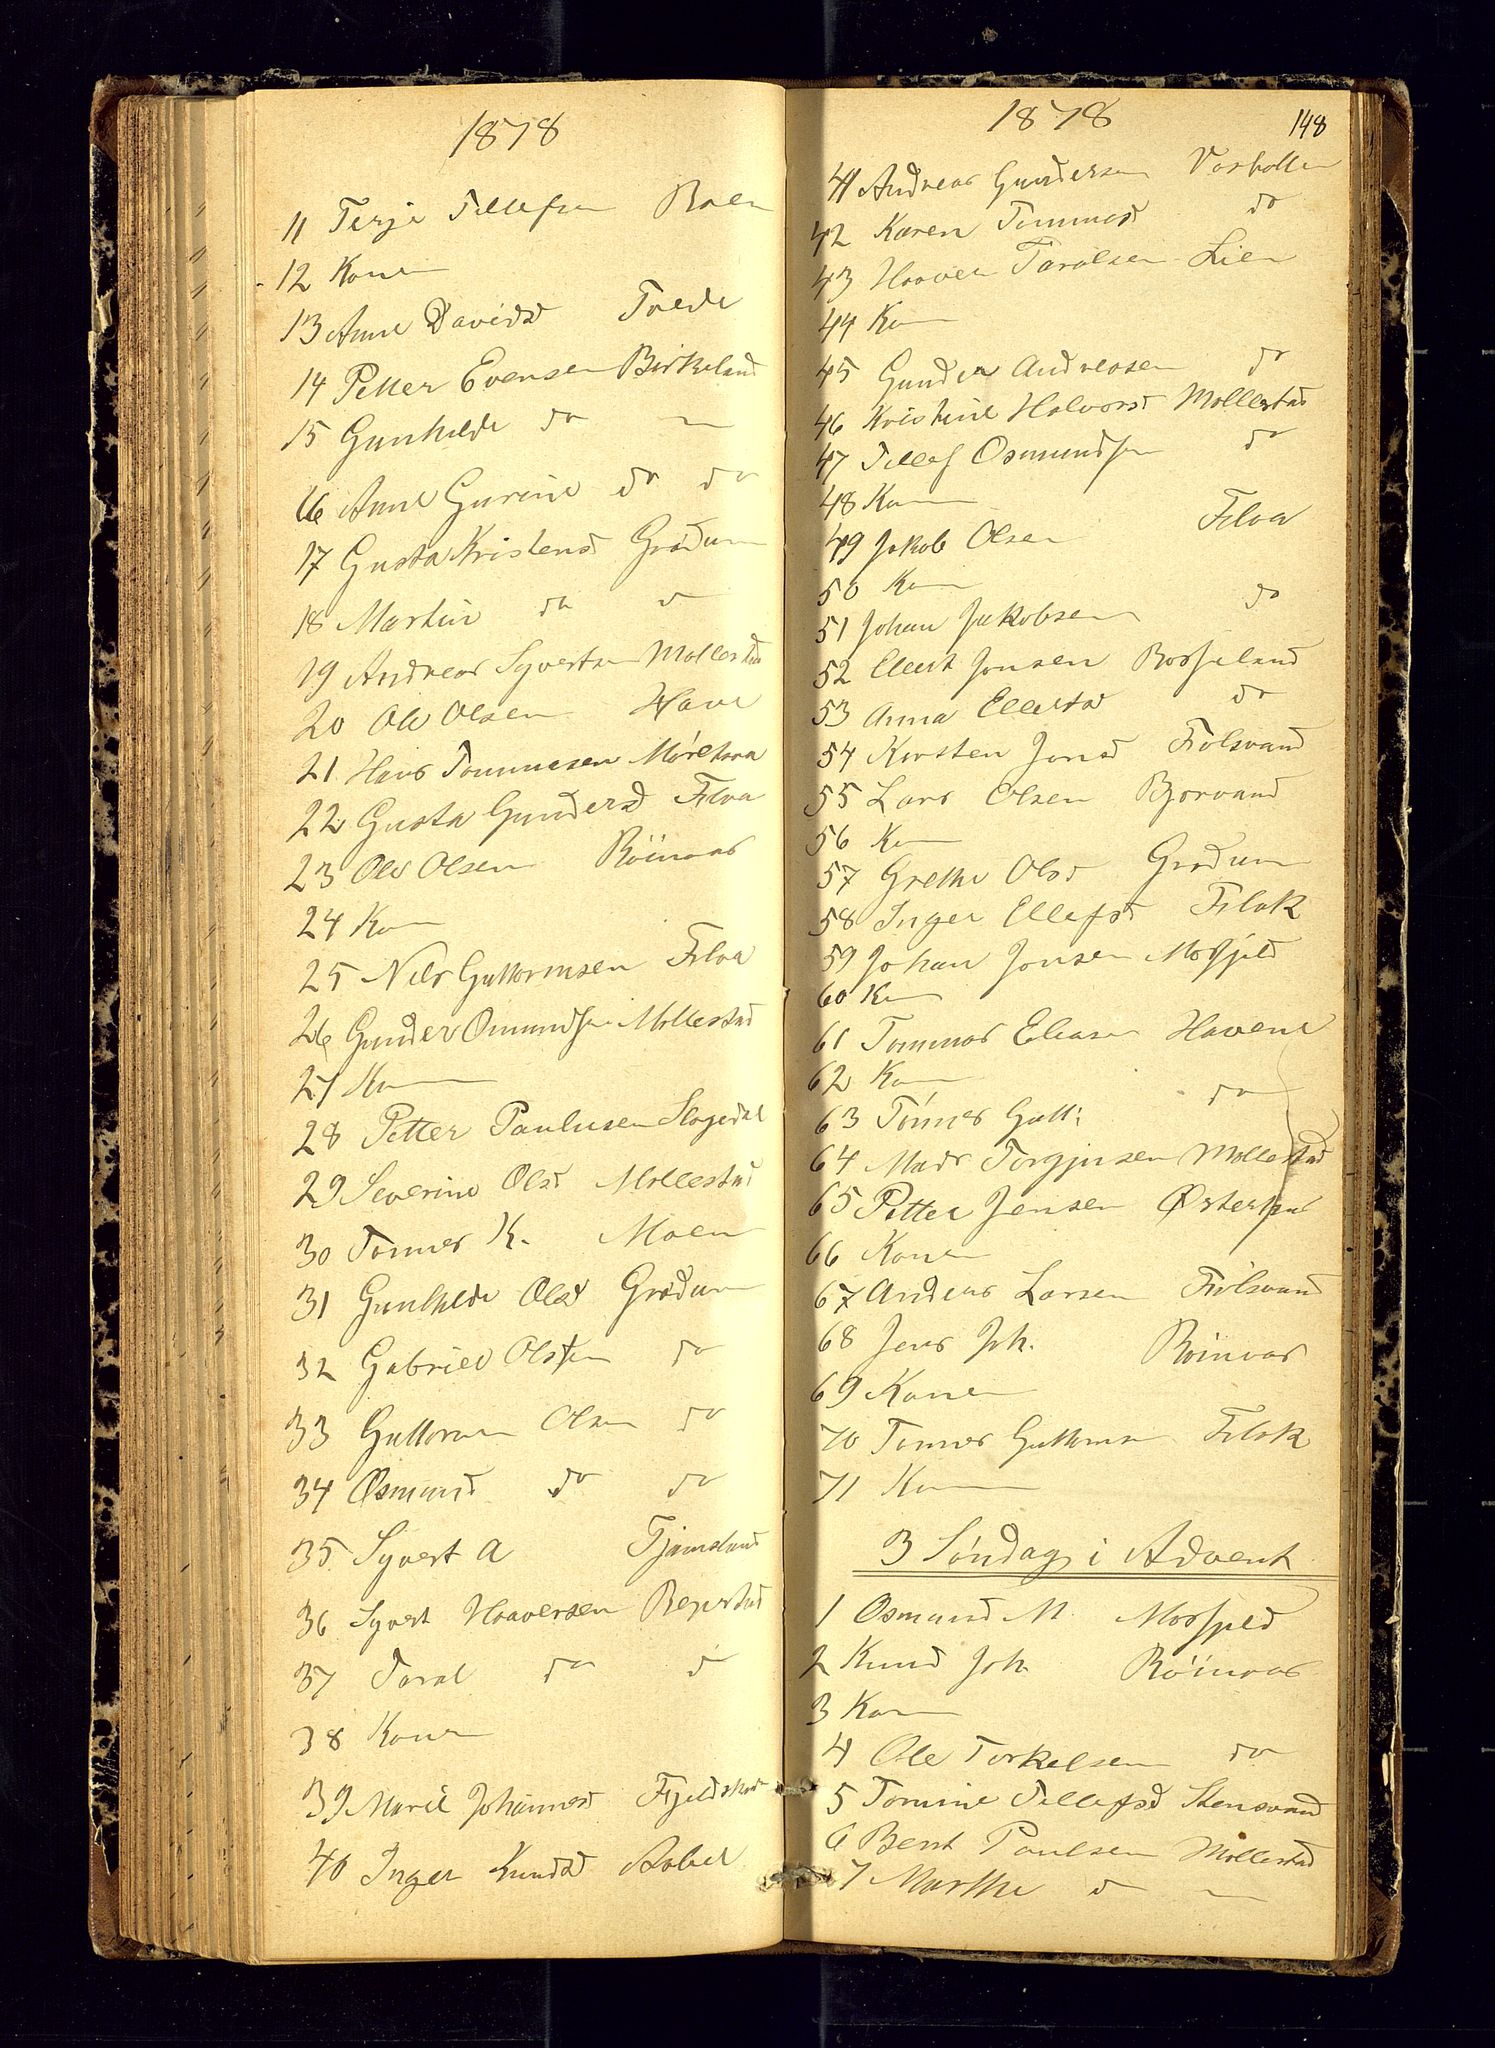 1878
11 Terje Tellefsen Boen
12 Konen
13 Anne Davidsd Tvede
14 Petter Evensen Birkeland
15 Gunhilde do —
16 Anne Gurine do do
17 Gusta Kristensd Grødum
18 Martin do d
19 Andreas Syvertsen Mollestad
20 Ole Olsen Have
21 Hans Tommesen
22 Gusta Gundersd Filva
23 Ole Olsen Röinaas
24 Kon
25 Nils Guttormsen Filva
26 Gunder Omundsen Mollestad
27 Kon
28 Petter Paulusen
29 Severine Olsd Mollestad
30 Tønnes K. Moen
31 Gunhilde Olsd Grødum
32 Gabriel Olsen do
33 Guttorm Olsen do
34 Osmund do do
35 Syvert A Tjamsland
36 Syvert Haaversen Repstad
37 Taral do d
38 Konen
39 Marie Johannesd
40 Inger Knudsd Aabel
1878 148
41 Andreas Gundersen Vasholten
42 Karen Tommasd do
43 Haaver Taralsen Lien
44 Kon
45 Gunder Andreasen do
46 Kristine Halvorsd Mollestad
47 Tellef Osmundsen do
48 Kon
49 Jakob Olsen Filva
50 Kon
51 Johan Jakobsen do
52 Ellert Jonsen Bosseland
53 Anna Ellertsd do
54 Karsten Jonsd Fiolsvand
55 Lars Olsen Bjorvand
56 Kon
57 Grethe Olsd Grødum
58 Inger Ellefsd Flak
59 Johan Jonsen Mosfjeld
60 Kon
61 Tommas Eliasen Havene
62 Kon
63 Tönnes Gutt: do
64 Mads Torgjusen Mollestad
65 Petter Jensen Østerhus
66 Konen
67 Andreas Larsen Fiölsvand
68 Jens Joh. Röinaas
69 Konen
70 Tønnes Guttormsen Flak
71 Kon
3 Søndag i Advent
1 Osmund M. Mosfjeld
2 Knud Joh. Röinaas
3 Kon
4 Ole Torkelsen do
5 Tomine Tellefsd Stensvand
6 Bent Paulsen Mollestad
7 Marthe d —